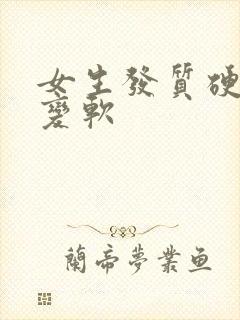 女生發質硬
變軟
蘭帝夢業魚